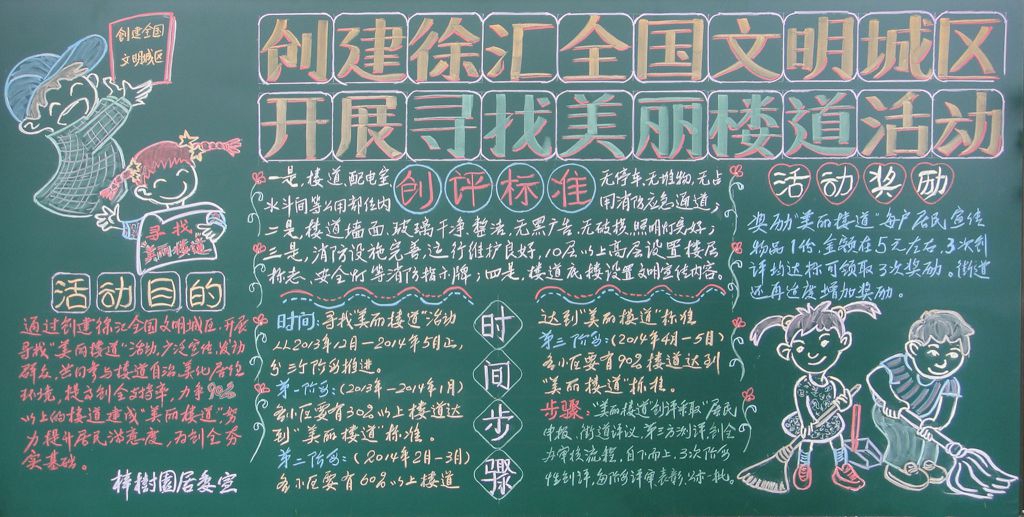 创建全国
文明城区
创建徐汇全国文明城区
开展寻找美丽楼道活动
寻找
"美丽楼道"
活动目的
通过创建徐汇全国文明城区,开展
寻找"美丽楼道"活动,广泛宣传、发动
群众,共同参与楼道自治,美化居住
环境,提高创全支持率,力争90%
以上的楼道建成"美丽楼道",努
力提升居民满意度,为创全夯
实基础。
梓樹園居委宣
创评标准
一是,楼道、配电室、
水斗间等公用部位内
无停车、无堆物、无占
用消防应急通道;
二是,楼道墙面、玻璃干净整洁,无黑广告,无破损,照明灯完好;
三是,消防设施完善,运行维护良好,10层以上高层设置楼层
标志、安全灯等消防指示牌;四是,楼道底楼设置文明宣传内容。
活动奖励
奖励"美丽楼道"每户居民宣传
物品1份,金额在5元左右,3次创
评均达标可领取3次奖励。街道
还再适度增加奖励。
时间步骤
时间:寻找"美丽楼道"活动
从2013年12月—2014年5月止,
分三个阶段推进。
第一阶段:(2013年—2014年1月)
各小区要有30%以上楼道达
到"美丽楼道"标准。
第二阶段:(2014年2月—3月)
各小区要有60%以上楼道
达到"美丽楼道"标准
第三阶段:(2014年4月—5月)
各小区要有90%楼道达到
"美丽楼道"标准。
步骤:"美丽楼道"创评采取"居民
申报、街道评议、第三方测评、创全
办审核流程,自下而上,3次阶段
性创评,每阶段评审表彰、公示一批。